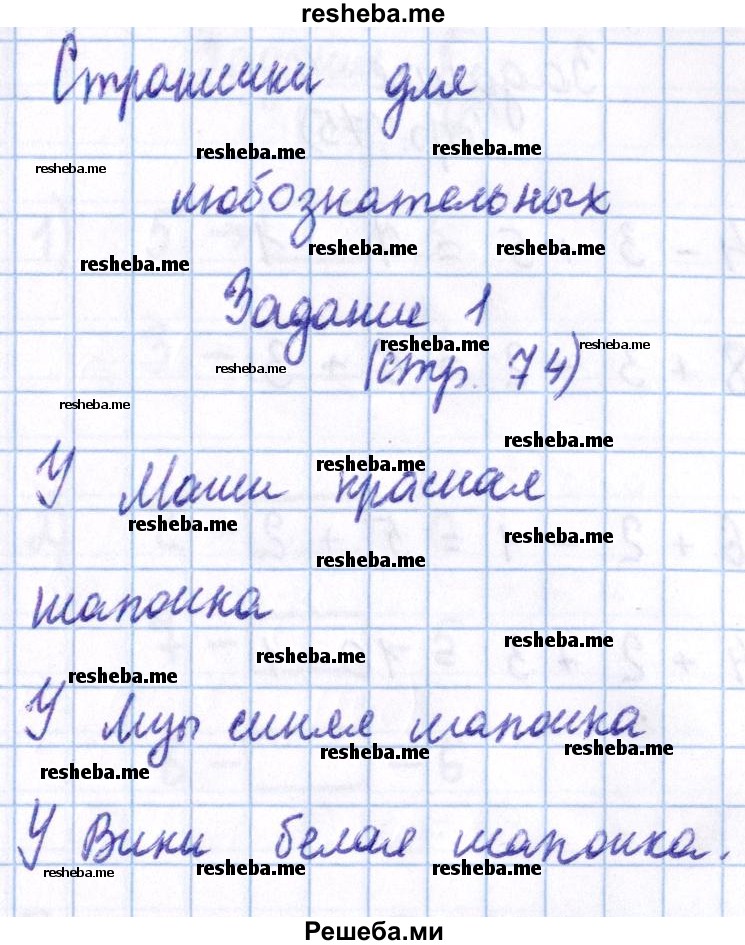 resheba.me
Странички для
resheba.me resheba.me
resheba.me
любознательных
resheba.me resheba.me
resheba.me
Задание 1
resheba.me resheba.me
resheba.me (стр. 74)
resheba.me
resheba.me
resheba.me
У Маши красная
resheba.me
resheba.me
resheba.me
шапочка
resheba.me
resheba.me
resheba.me
У синяя шапочка
resheba.me resheba.me
resheba.me
У Вики белая шапочка.
resheba.me resheba.me resheba.me
Решеба.ми